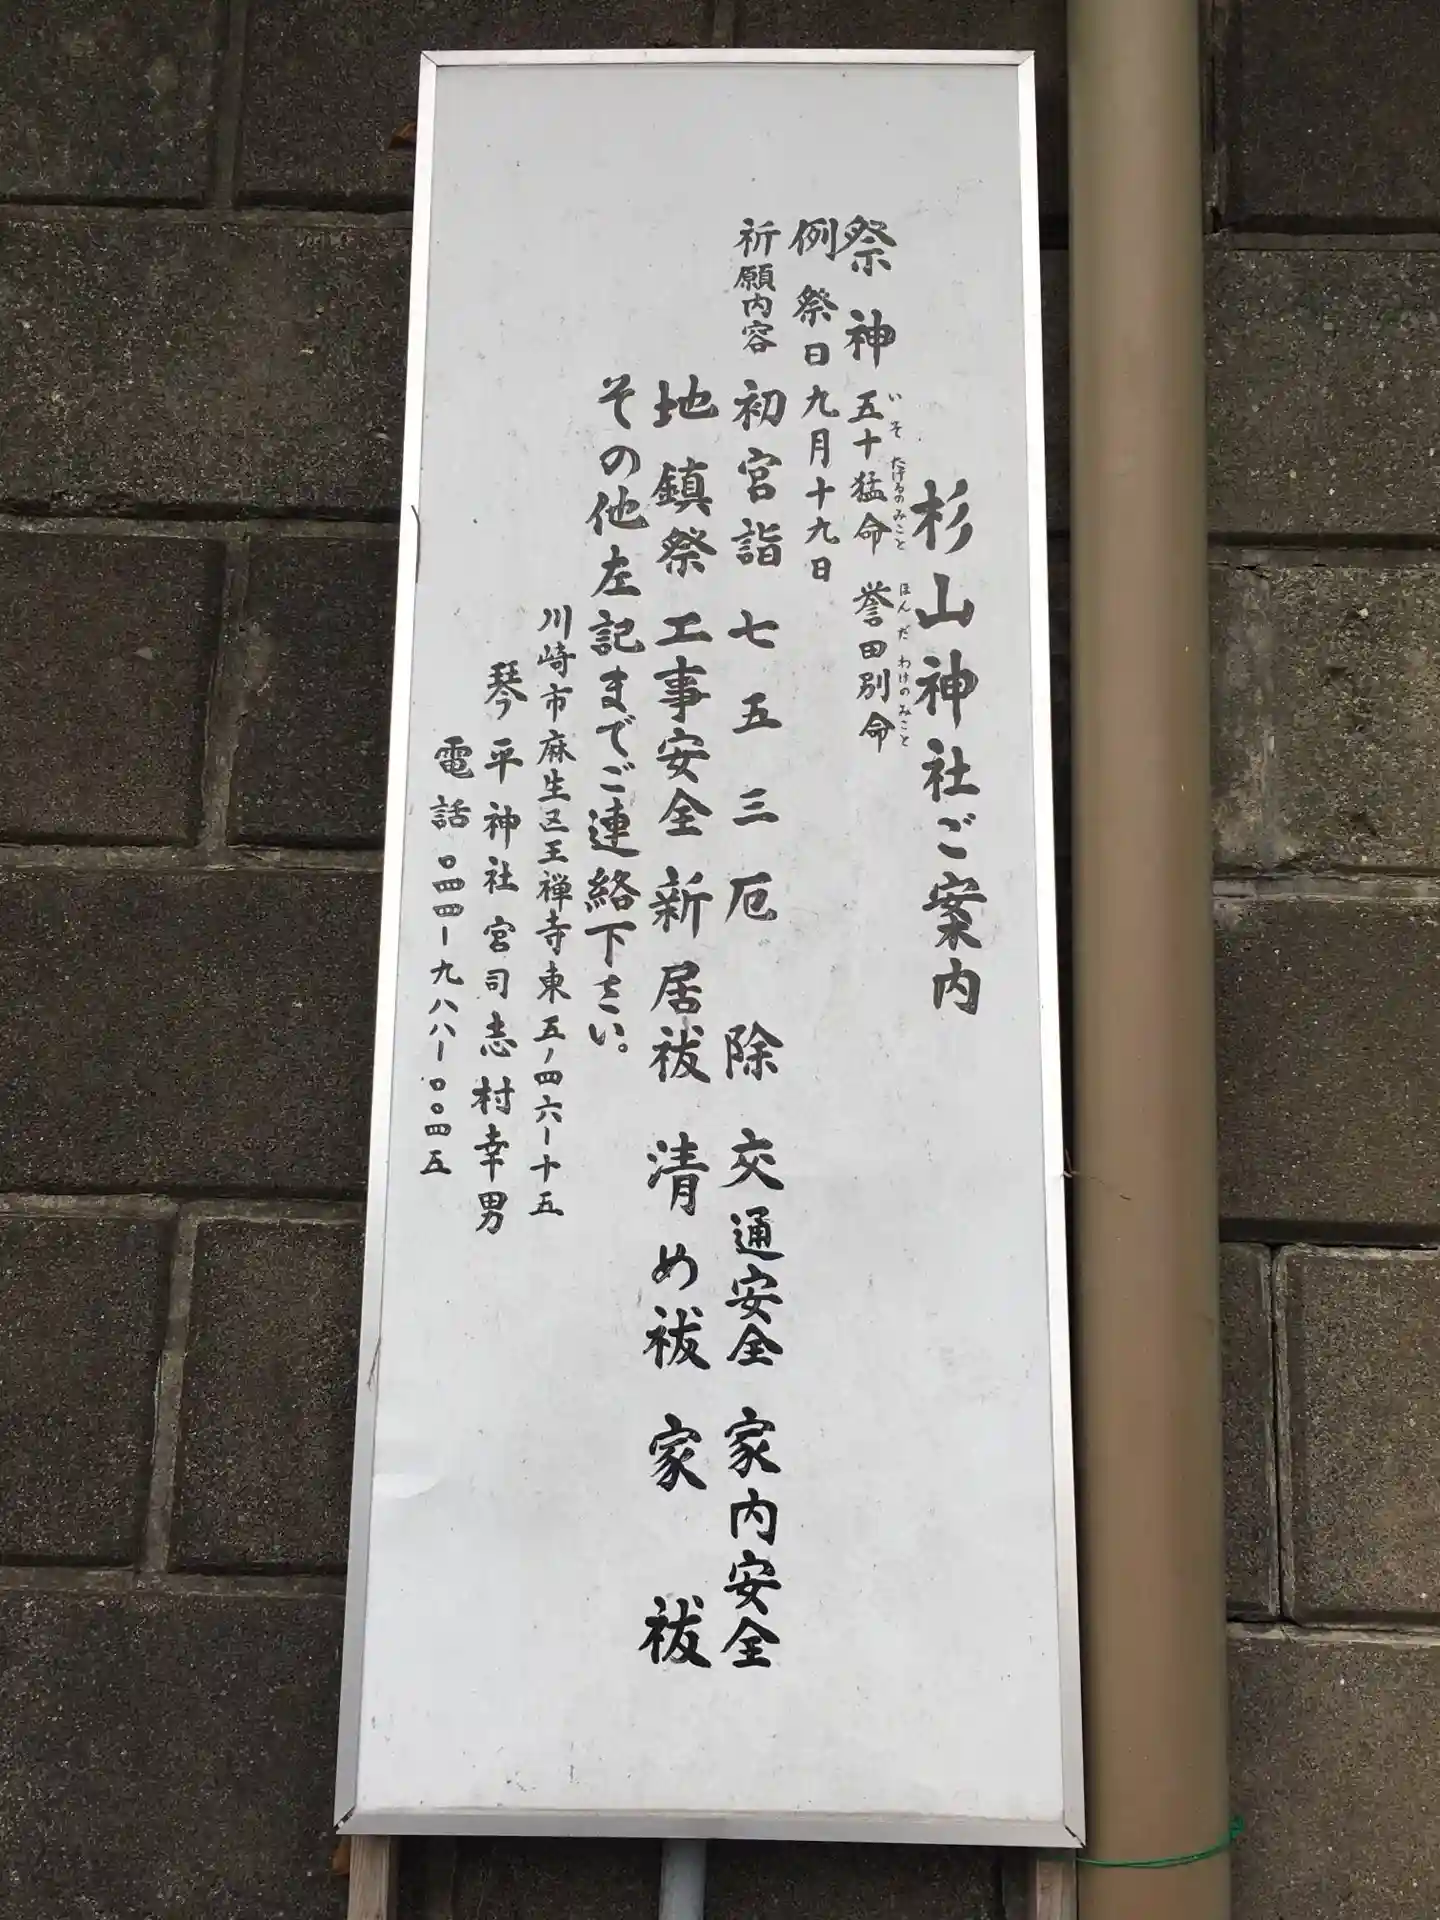 杉山神社ご案内
祭神 五十猛命 誉田別命
いそたけるのみこと ほんだわけのみこと
例祭日 九月十九日
祈願内容 初宮詣 七五三 厄除 交通安全 家内安全
地鎮祭 工事安全 新居祓 清め祓 家祓
その他左記までご連絡下さい。
川崎市麻生区王禅寺東五ノ四六ー十五
琴平神社 宮司 志村幸男
電話 〇四四ー九八八ー〇〇四五